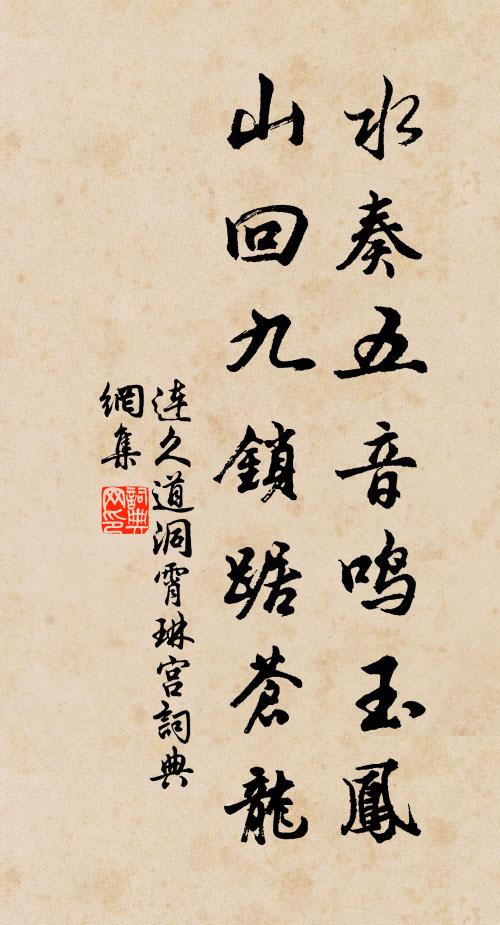 水奏五音鸣玉鳳
山回九鎖踞蒼龍
连久道洞霄琳宫詞典
網集
詞典网印